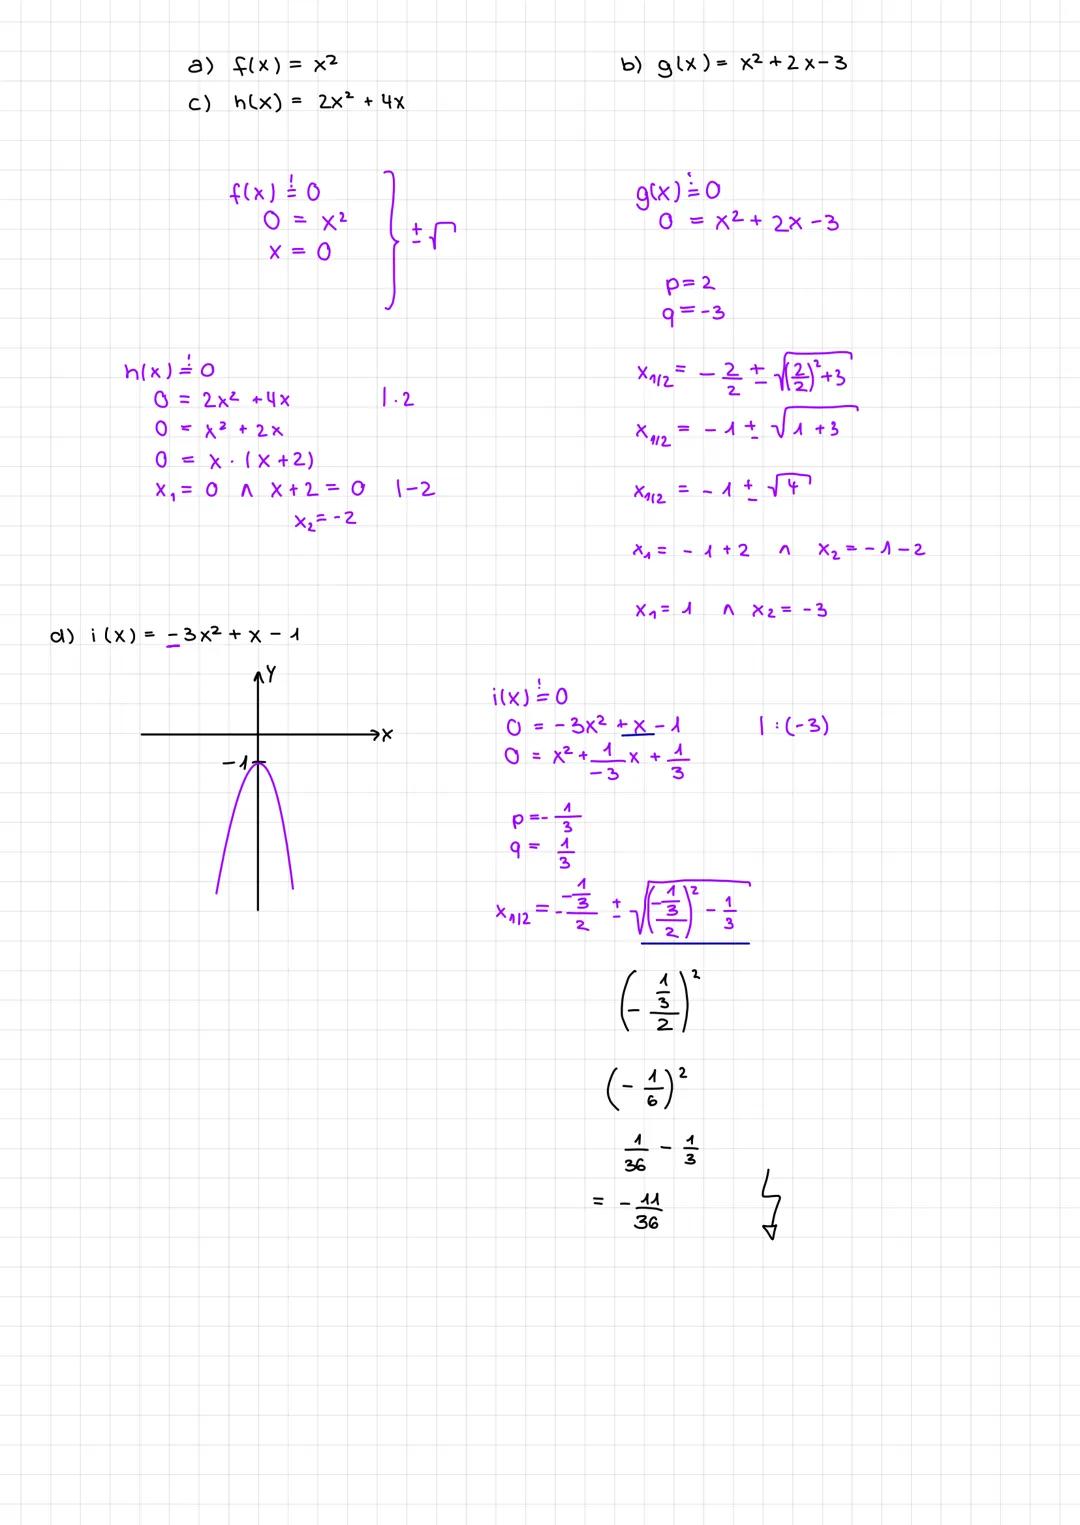 a) f(x) = x²
b) g(x) = x² + 2x - 3
c) h(x) = 2x² + 4x
f(x) ≟ 0
0 = x²
x = 0
±√
g(x) ≟ 0
0 = x² + 2x - 3
p = 2
q = -3
x₁/₂ = - 2/2 ± √((2/2)² + 3)
x₁/₂ = - 1 ± √(1 + 3)
x₁/₂ = - 1 ± √4
x₁ = - 1 + 2 ∧ x₂ = - 1 - 2
x₁ = 1 ∧ x₂ = - 3
h(x) ≟ 0
0 = 2x² + 4x |·2
0 = x² + 2x
0 = x · (x + 2)
x₁ = 0 ∧ x + 2 = 0 |-2
x₂ = -2
d) i(x) = -3x² + x - 1
Y
X
-1
i(x) ≟ 0
0 = -3x² + x - 1 | : (-3)
0 = x² + 1/-3 x + 1/3
p = - 1/3
q = 1/3
x₁/₂ = - (-1/3)/2 ± √(((-1/3)/2)² - 1/3)
(- (1/3)/2)²
(- 1/6)²
1/36 - 1/3
= - 11/36